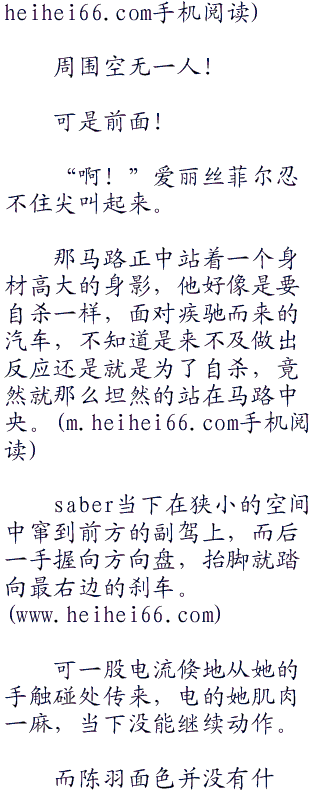 heihei66.com手机阅读)
周围空无一人！
可是前面！
“啊！”爱丽丝菲尔忍
不住尖叫起来。
那马路正中站着一个身
材高大的身影，他好像是要
自杀一样，面对疾驰而来的
汽车，不知道是来不及做出
反应还是就是为了自杀，竟
然就那么坦然的站在马路中
央。(m.heihei66.com手机阅
读)
saber当下在狭小的空间
中窜到前方的副驾上，而后
一手握向方向盘，抬脚就踏
向最右边的刹车。
(www.heihei66.com)
可一股电流倏地从她的
手触碰处传来，电的她肌肉
一麻，当下没能继续动作。
而陈羽面色并没有什